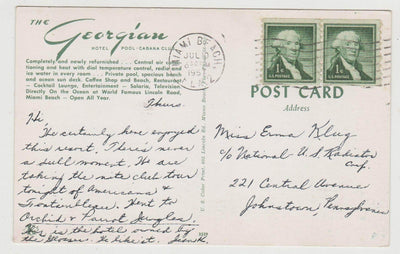 THE
Georgian
HOTEL POOL - CABANA CLUB
Completely and newly refurnished . . . Central air condi-
tioning and heat with dial temperature control, radio and
ice water in every room . . . Private pool, spacious beach
and ocean sun deck. Coffee Shop and Beach, Restaurant
— Cocktail Lounge, Entertainment — Solaria, Television
Directly On the Ocean at World Famous Lincoln Road,
Miami Beach — Open All Year.
Thurs
Hi,
We certainly have enjoyed
this resort. There's never
a dull moment. We are
taking the nite club tour
tonight of Americana &
Fontainbleau. Went to
Orchid & Parrot Jungles.
This is the hotel owned by
the We like it.
MIAMI BEACH
JUL
PM
195
FLA.
1¢ 1¢
U.S. POSTAGE U.S. POSTAGE
POST CARD
Address
Miss Erma Klug
c/o National U.S. Radiator
Corp.
221 Central Avenue
Johnstown, Pennsylvania